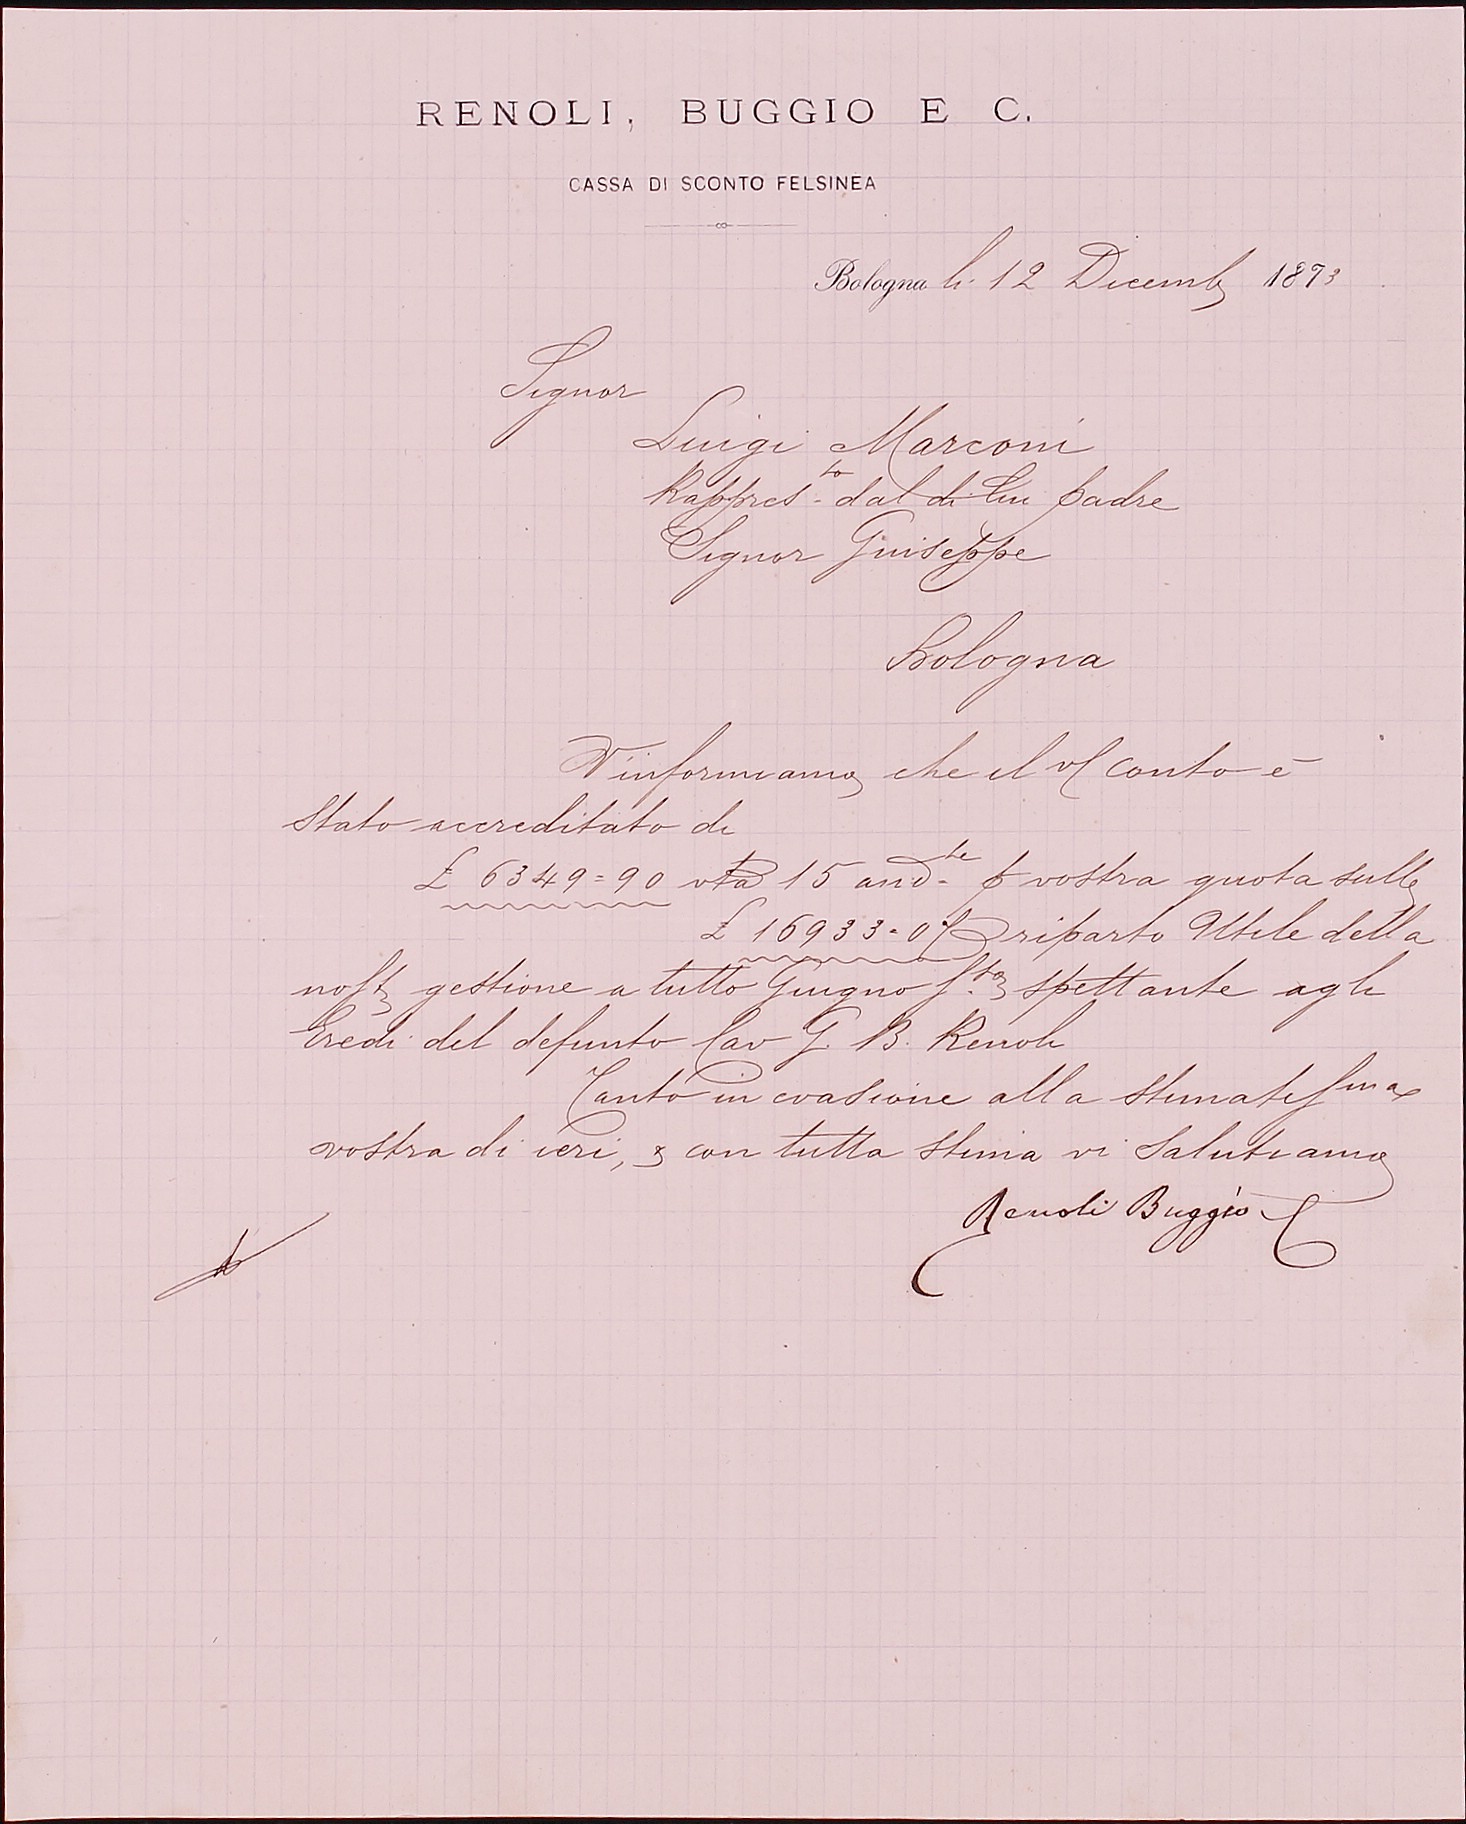 RENOLI, BUGGIO E C.
CASSA DI SCONTO FELSINEA
Bologna li 12 Dicemb 1873
Signor
Luigi Marconi
Rappres.to dal di Lui padre
Signor Giuseppe
Bologna
V'informiamo che il v/ conto è
stato accreditato di
£ 6349=90 vta 15 andte p vostra quota sulle
£ 16933=07 riparto Utile della
nostra gestione a tutto Giugno spettante agli
Eredi del defunto Cav G. B. Renoli
Tanto in evasione alla stimatissma
vostra di ieri, & con tutta stima vi salutiamo
Renoli Buggio C